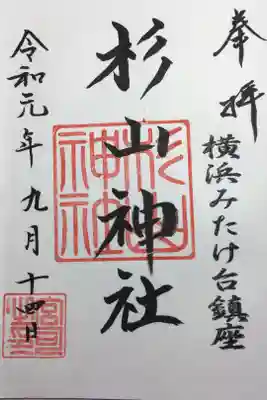 奉拝
横浜みたけ台鎮座
杉山神社
杉山神社
令和元年九月十四日